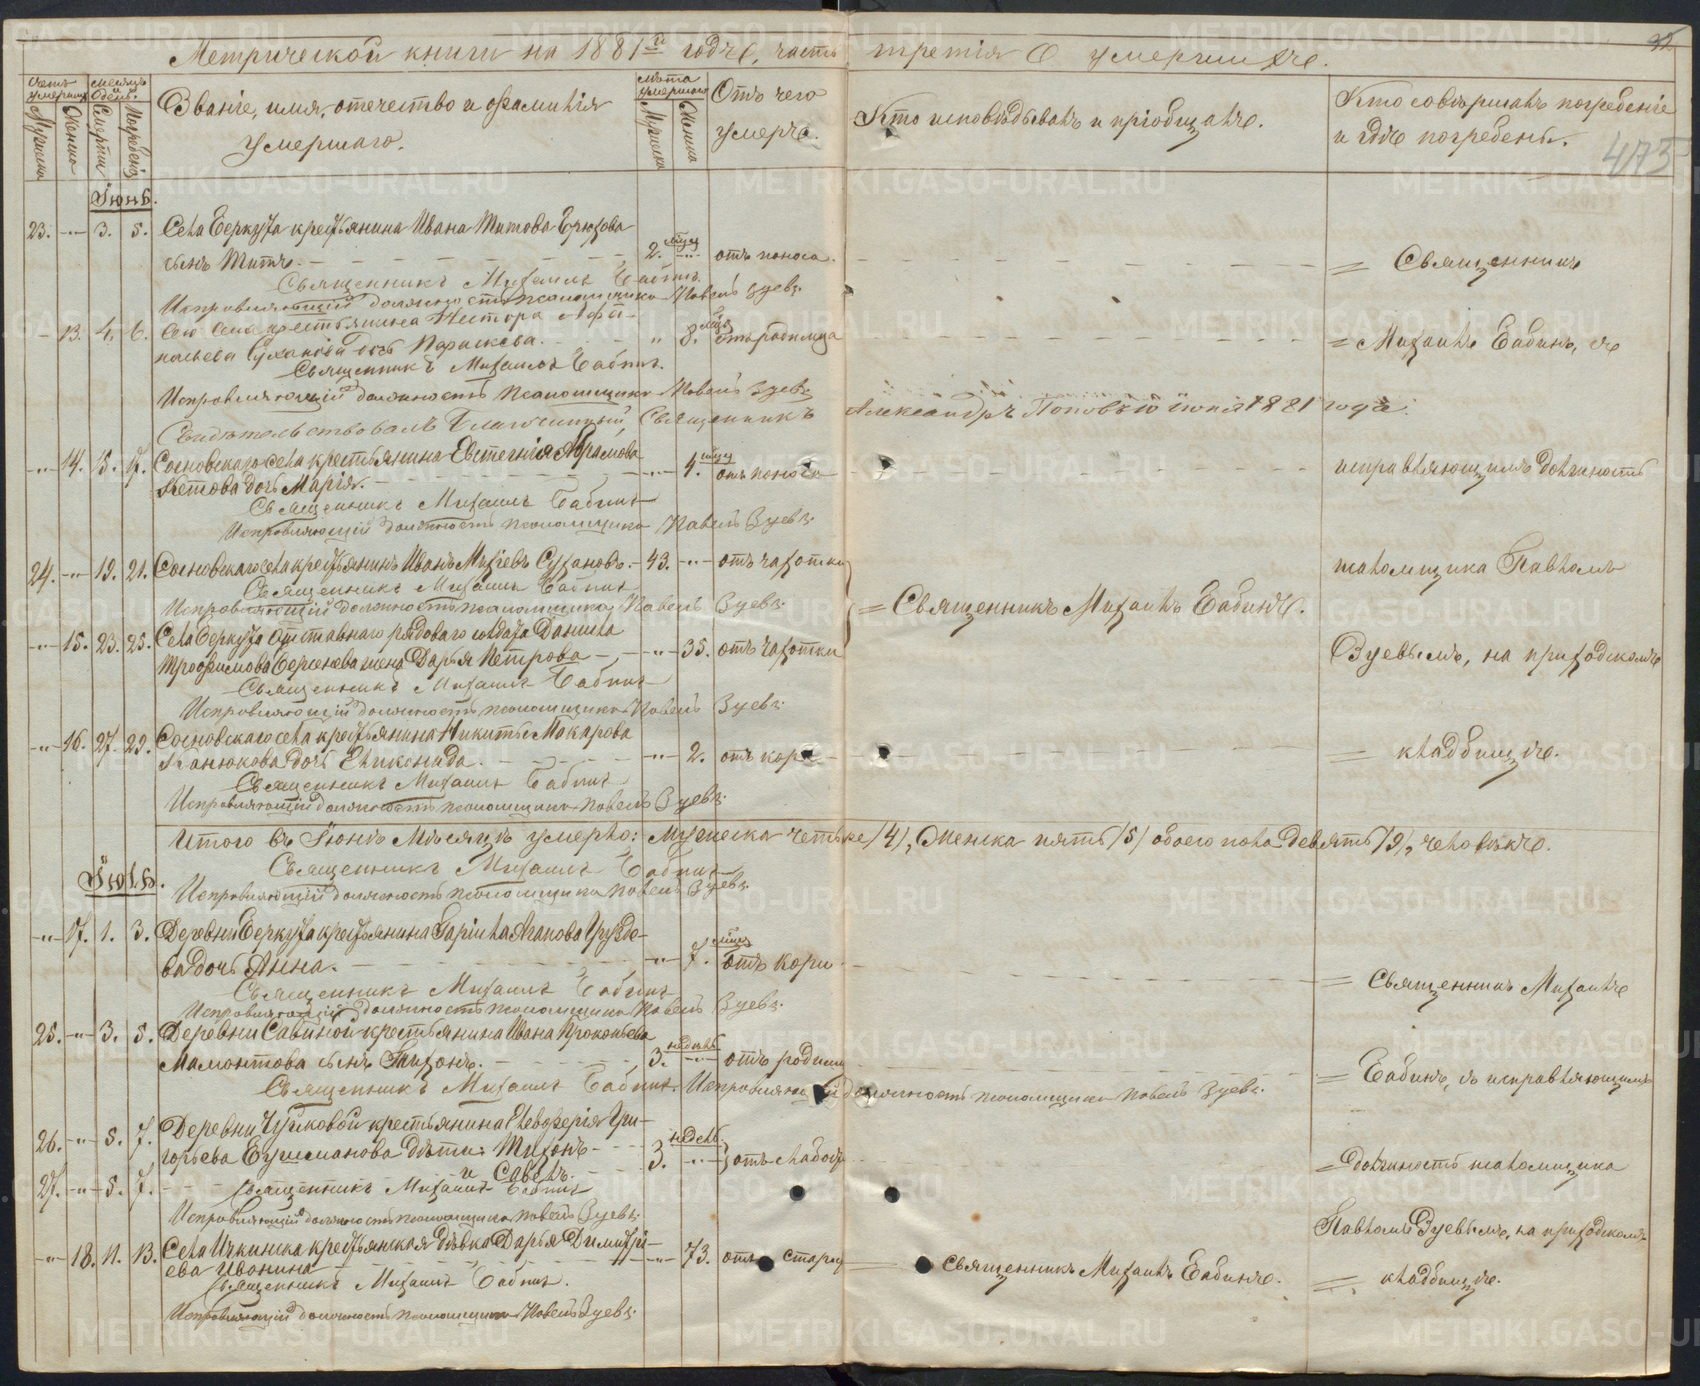 Метрической книги на 1881й годъ, часть третія О умершихъ.
35.
473
Счетъ умершихъ
Мужеска
Женска
Мѣсяцъ и день.
Смерти
Погребенія
Званіе, имя, отчество и фамилія
умершаго.
Лѣта умершаго
Мужеска
Женска
Отъ чего
умеръ.
Кто исповѣдывалъ и пріобщалъ.
Кто совершалъ погребеніе
и гдѣ погребены.
Іюнь.
23. - 3. 5. Села Беркута крестьянина Ивана Титова
сынъ Титъ. 2. мѣсц отъ поноса.
Священникъ Михаилъ Бабинъ
Исправляющій должность псаломщика Павелъ Зуевъ.
- 13. 4. 6. Сего села крестьянина Нестора Афа-
насьева Суханова дочь Параскева. 8. мѣсц отъ родимца
Священникъ Михаилъ Бабинъ.
Исправляющій должность псаломщика Павелъ Зуевъ.
Свидѣтельствовалъ Благочинный, Священникъ Александръ Поповъ 10 іюня 1881 года.
- 14. 15. 17. Сосновскаго села крестьянина Евстегнія Абрамова
Кетова дочь Марія. отъ поноса
Священникъ Михаилъ Бабинъ
Исправляющій должность псаломщика Павелъ Зуевъ.
24. - 19. 21. Сосновскаго села крестьянинъ Иванъ Михѣевъ Сухановъ. 43. отъ чахотки
Священникъ Михаилъ Бабинъ
Исправляющій должность псаломщика Павелъ Зуевъ.
- 15. 23. 25. Села Беркута отставнаго рядоваго солдата Данила
Трофимова жена Дарья Петрова 35. отъ чахотки
Священникъ Михаилъ Бабинъ
Исправляющій должность псаломщика Павелъ Зуевъ.
= Священникъ Михаилъ Бабинъ.
- 16. 27. 29. Сосновскаго села крестьянина Никиты Макарова
Канюкова дочь Еликонида. 2. отъ кори
Священникъ Михаилъ Бабинъ
Исправляющій должность псаломщика Павелъ Зуевъ.
= Священникъ
= Михаилъ Бабинъ, съ
исправляющимъ должность
псаломщика Павломъ
Зуевымъ, на приходскомъ
= кладбищѣ.
Итого въ Іюнѣ Мѣсяцѣ умерло: мужеска четыре /4/, Женска пять /5/ обоего пола девять /9/, человѣкъ.
Священникъ Михаилъ Бабинъ
Исправляющій должность псаломщика Павелъ Зуевъ.
Іюль.
- 17. 1. 3. Деревни Беркута крестьянина Гаріила Агапова Грузде-
ва дочь Анна. 7. мѣсц отъ кори
Священникъ Михаилъ Бабинъ
Исправляющій должность псаломщика Павелъ Зуевъ.
25. - 3. 5. Деревни Савиной крестьянина Ивана Прокопьева
Мамонтова сынъ Тихонъ. 3. недѣль отъ родимц
Священникъ Михаилъ Бабинъ. Исправляющій должность псаломщика Павелъ Зуевъ.
26. - 5. 7. Деревни крестьянина Елевферія Гри-
горьева дѣти: Тихонъ 3. недѣль отъ слабост
27. - 5. 7. и Савелъ.
Священникъ Михаилъ Бабинъ
Исправляющій должность псаломщика Павелъ Зуевъ.
- 18. 11. 13. Села Ичкинска крестьянская дѣвка Дарья Димитрі-
ева Иванина 73. отъ старос = Священникъ Михаилъ Бабинъ.
Священникъ Михаилъ Бабинъ.
Исправляющій должность псаломщика Павелъ Зуевъ.
= Священникъ Михаилъ
= Бабинъ, съ исправляющимъ
= должность псаломщика
Павломъ Зуевымъ, на приходскомъ
= кладбищѣ.
METRIKI.GASO-URAL.RU